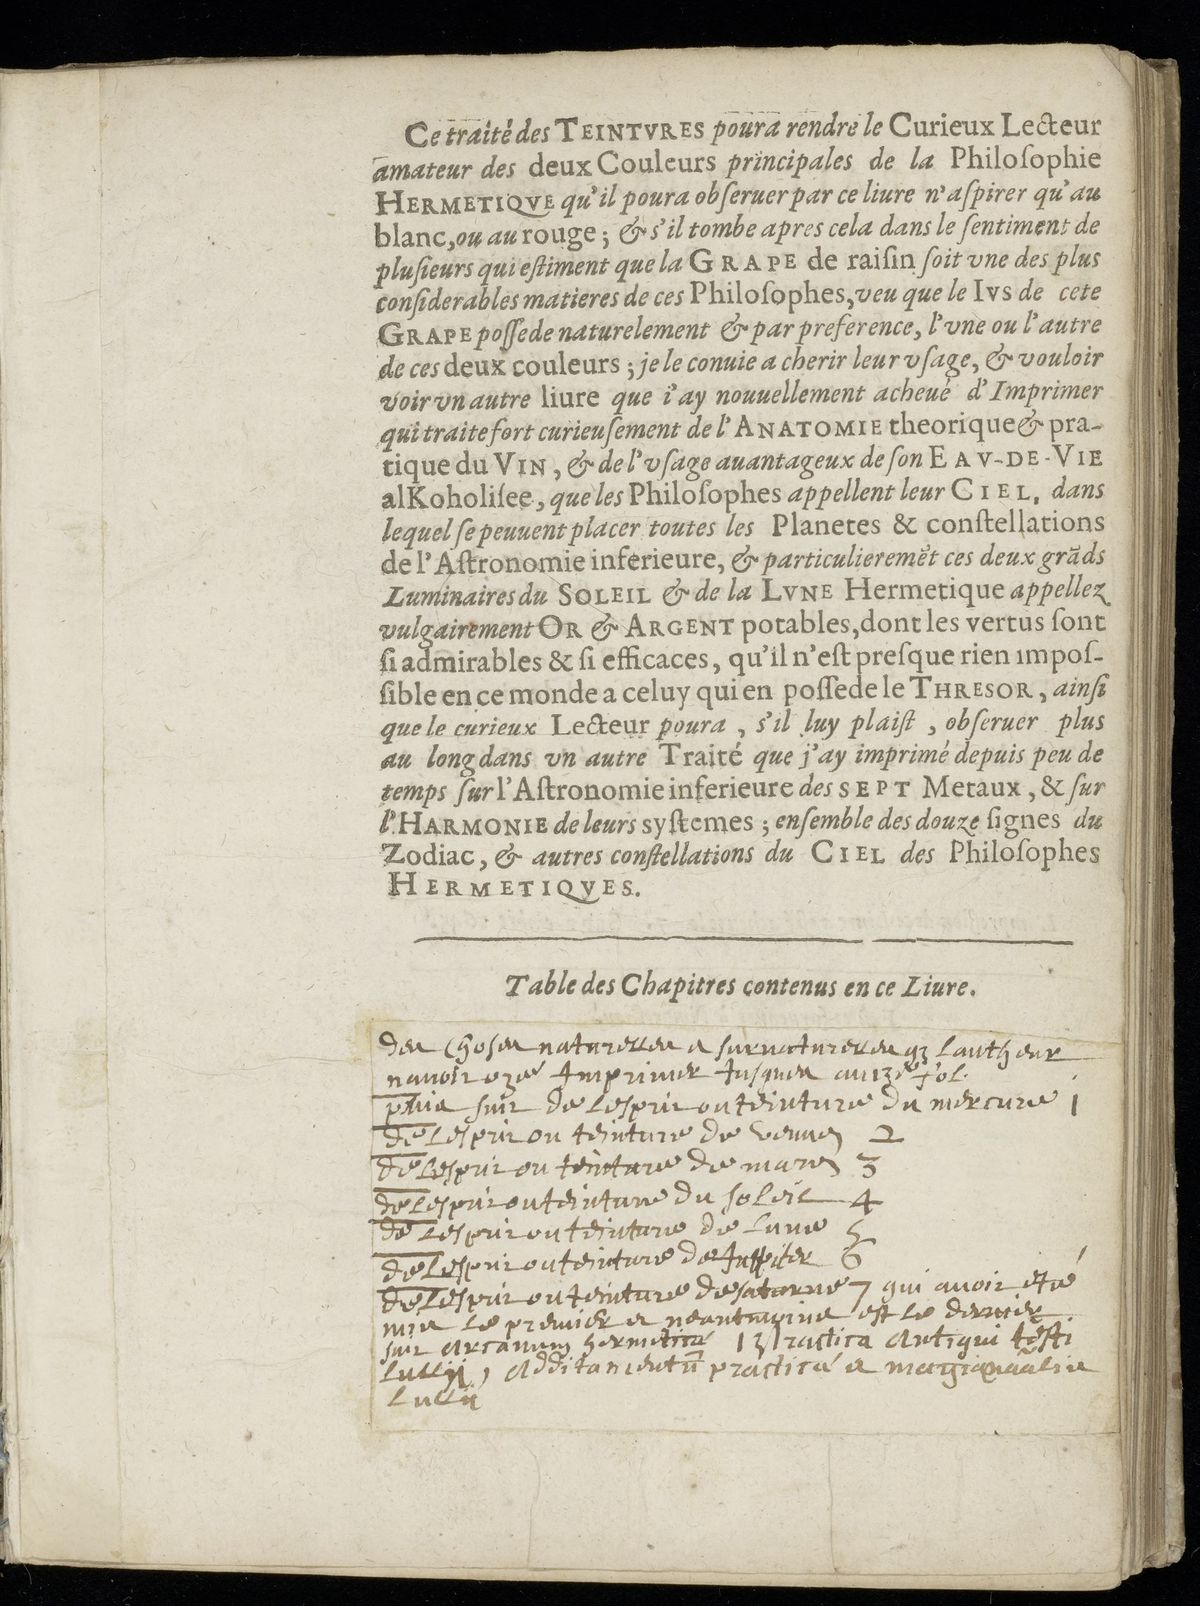 Ce traité des TEINTVRES poura rendre le Curieux Lecteur
amateur des deux Couleurs principales de la Philoſophie
HERMETIQVE qu'il poura obſeruer par ce liure n'aſpirer qu'au
blanc, ou au rouge; & s'il tombe apres cela dans le ſentiment de
pluſieurs qui eſtiment que la GRAPE de raiſin ſoit vne des plus
conſiderables matieres de ces Philoſophes, veu que le IVS de cete
GRAPE poſſede naturelement & par preference, l'vne ou l'autre
de ces deux couleurs; je le conuie a cherir leur vſage, & vouloir
voir vn autre liure que i'ay nouuellement acheué d'Imprimer
qui traite fort curieuſement de l'ANATOMIE theorique & pra-
tique du VIN, & de l'vſage auantageux de ſon EAV-DE-VIE
alKoholiſee, que les Philoſophes appellent leur CIEL, dans
lequel ſe peuuent placer toutes les Planetes & conſtellations
de l'Aſtronomie inferieure, & particulieremēt ces deux grāds
Luminaires du SOLEIL & de la LVNE Hermetique appellez
vulgairement OR & ARGENT potables, dont les vertus ſont
ſi admirables & ſi efficaces, qu'il n'eſt preſque rien impoſ-
ſible en ce monde a celuy qui en poſſede le THRESOR, ainſi
que le curieux Lecteur poura, s'il luy plaiſt, obſeruer plus
au long dans vn autre Traité que j'ay imprimé depuis peu de
temps ſur l'Aſtronomie inferieure des SEPT Metaux, & ſur
l'HARMONIE de leurs syſtemes; enſemble des douze ſignes du
Zodiac, & autres conſtellations du CIEL des Philoſophes
HERMETIQVES.
Table des Chapitres contenus en ce Liure.
des choses naturelles et surnaturelles lautheur
navoit ozé Imprimer Jusques fol.
puis suit de lesprit ou teinture du mercure 1
de lesprit ou teinture de venus 2
de lesprit ou teinture de mars 3
de lesprit ou teinture du soleil 4
de lesprit ou teinture de lune 5
de lesprit ou teinture de Juppiter 6
de lesprit ou teinture de saturne 7 qui avoit été
mis le premier et neantmoins est le dernier
suit arcanum hermetica practica antiqui testi
lullij, additamentū practicæ et
lullii